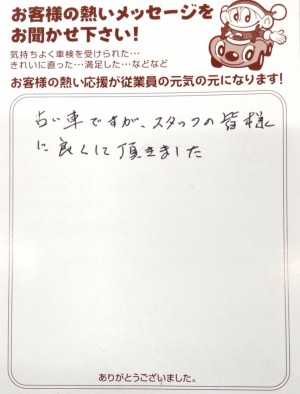 お客様の熱いメッセージを
お聞かせ下さい!
気持ちよく車検を受けられた…
きれいに直った…満足した…などなど
お客様の熱い応援が従業員の元気の元になります!
古い車ですが、スタッフの皆様
に良くして頂きました
ありがとうございました。